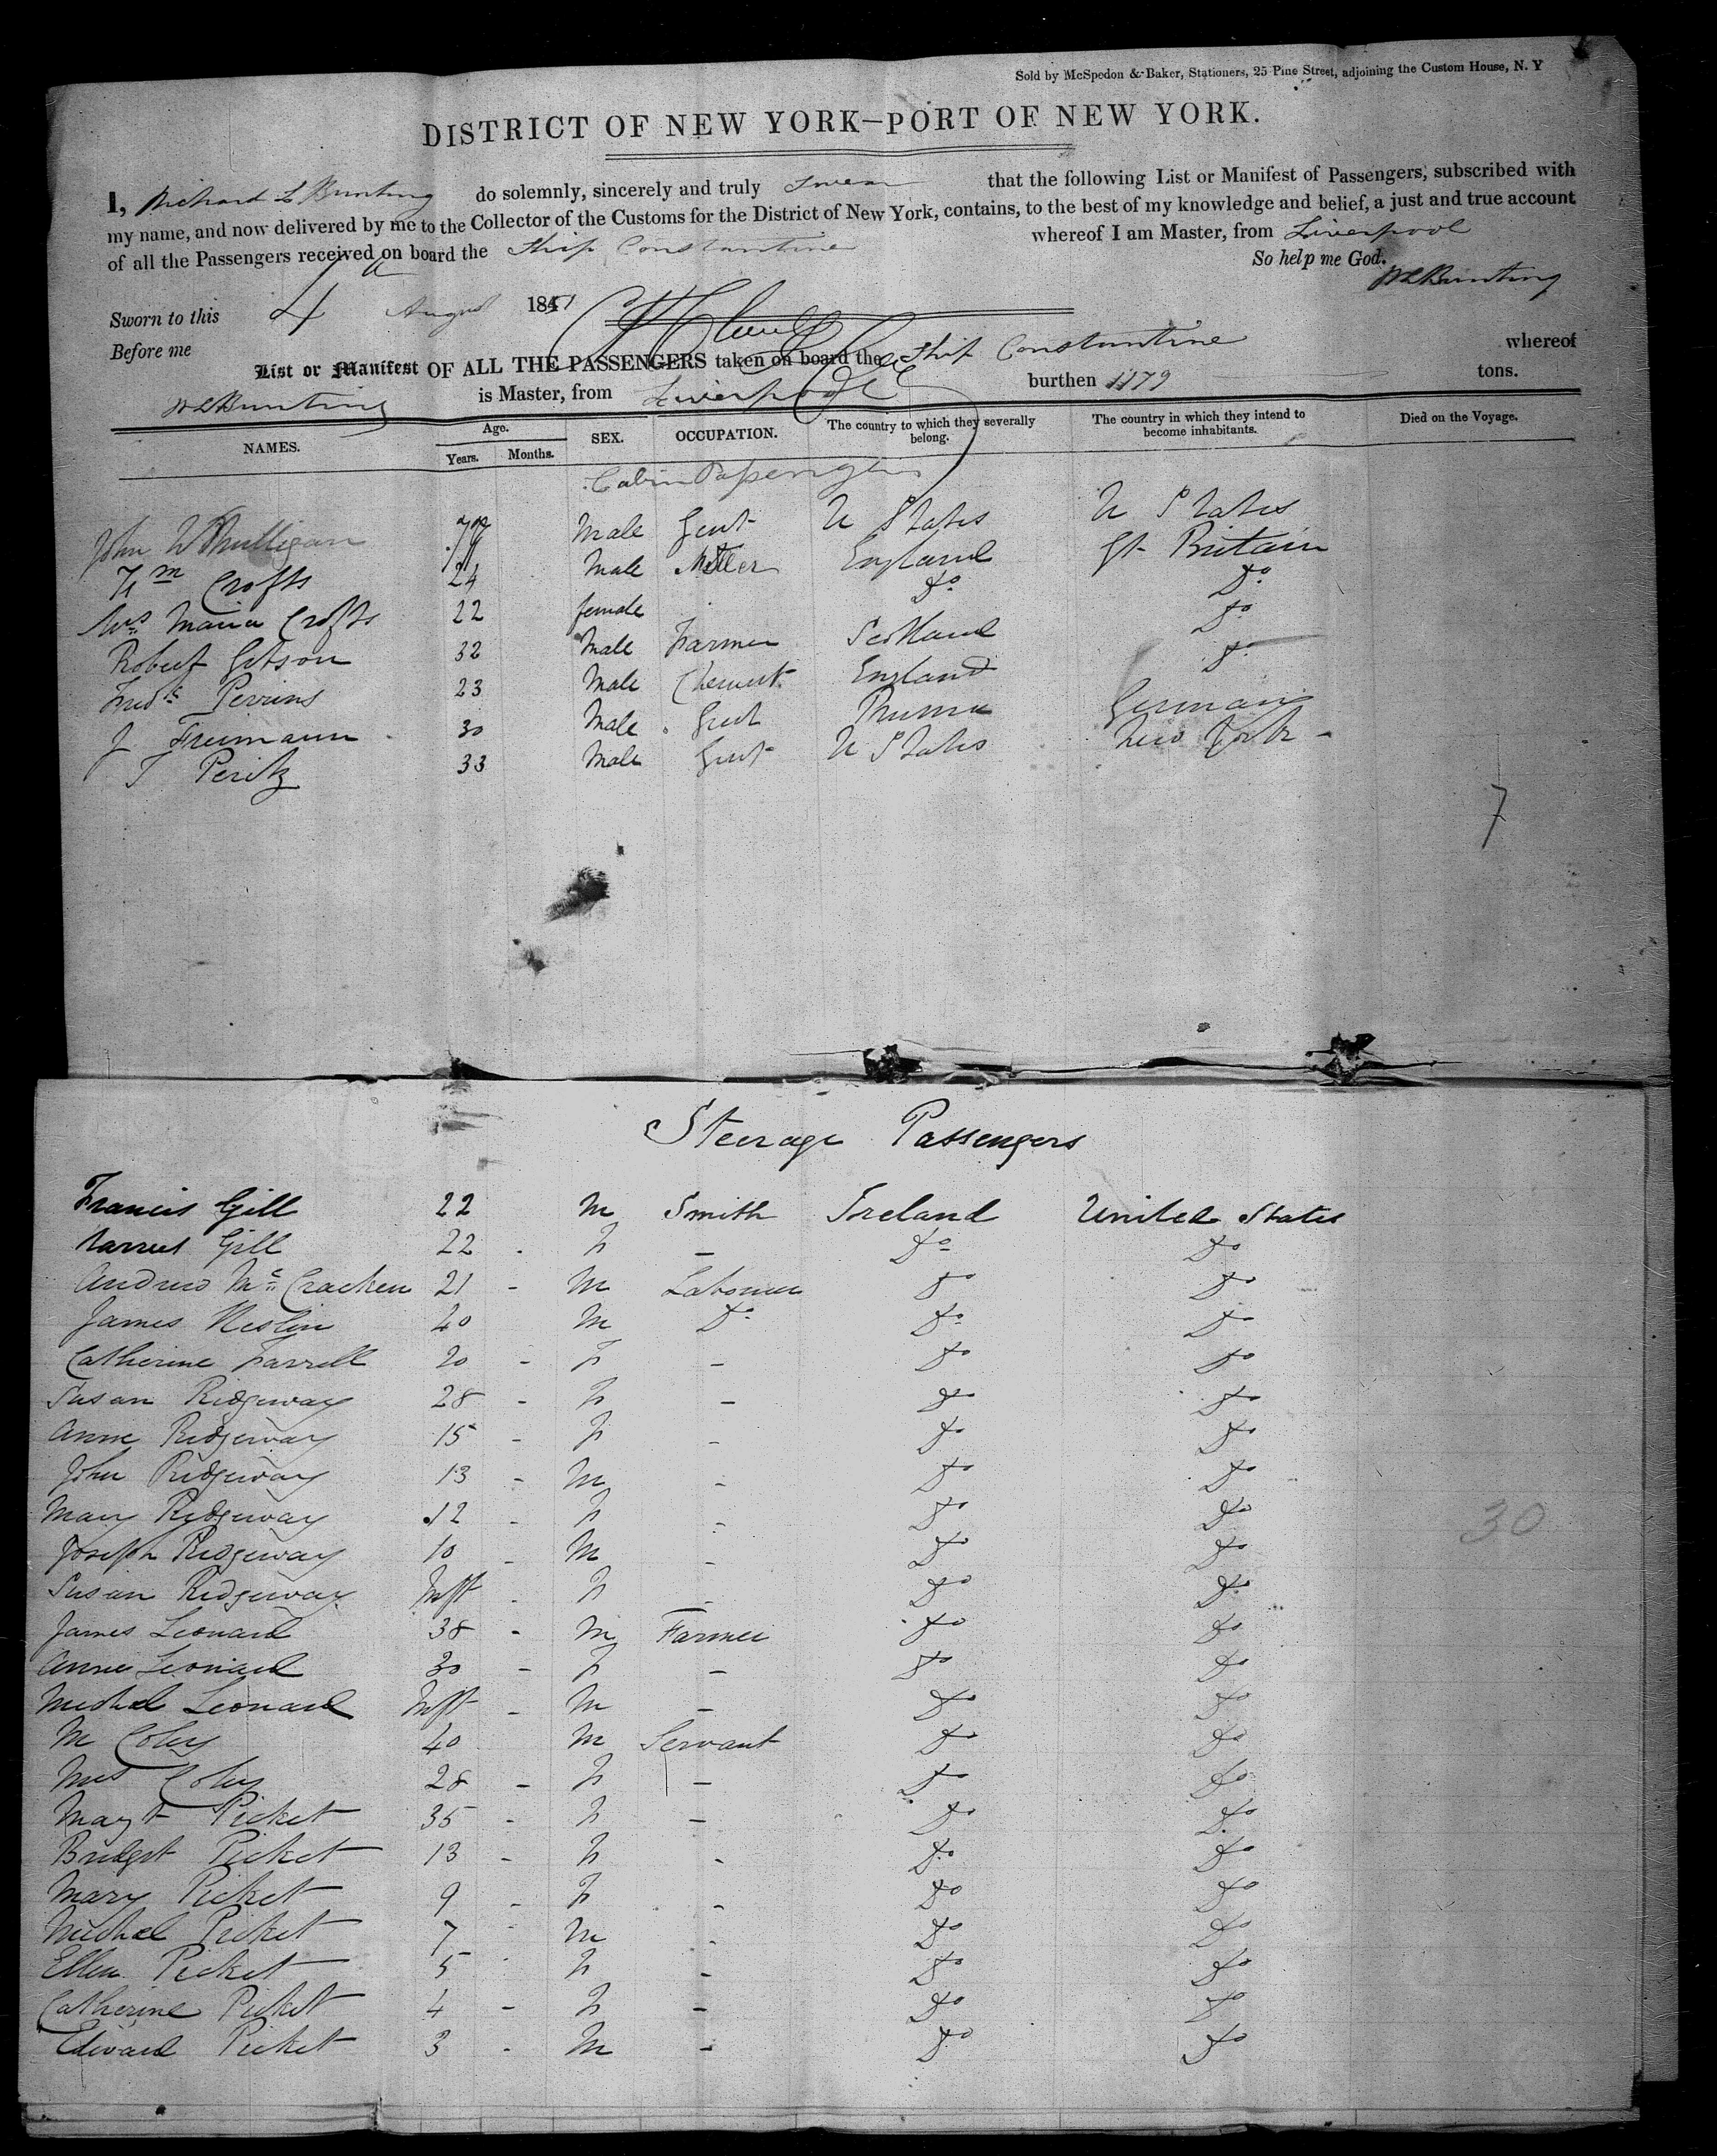 Sold by McSpedon & Baker, Stationers, 25 Pine Street, adjoining the Custom House, N. Y
DISTRICT OF NEW YORK—PORT OF NEW YORK.
I, Richard L Bunting do solemnly, sincerely and truly swear that the following List or Manifest of Passengers, subscribed with
my name, and now delivered by me to the Collector of the Customs for the District of New York, contains, to the best of my knowledge and belief, a just and true account
of all the Passengers received on board the Ship Constantine whereof I am Master, from Liverpool
So help me God.
RLBunting
Sworn to this 4 August 1851
Before me
List or Manifest OF ALL THE PASSENGERS taken on board the Ship Constantine whereof
RLBunting is Master, from Liverpool burthen 1179 tons.
NAMES. Age. Years. Months. SEX. OCCUPATION. The country to which they severally belong. The country in which they intend to become inhabitants. Died on the Voyage.
Cabin Passengers
John W Mulligan Male Gent U States U States
Wm Crofts 24 Male England Gt Britain
Mrs Maria Crofts 22 female Do Do
Robert Gibson 32 Male Farmer Scotland Do
Fredk Perrins 23 Male Chemist England Do
J Freimann 30 Male Gent Prussia Germany
J Peritz 33 Male Gent U States New York
7
Steerage Passengers
Francis Gill 22 M Smith Ireland United States
Harriet Gill 22 - F - Do Do
Andrew Mc Cracken 21 - M Labourer Do Do
James Heslin 40 M Do Do Do
Catherine Farrell 20 - F - Do Do
Susan Ridgeway 28 - F - Do Do
Anne Ridgeway 15 - F - Do Do
John Ridgeway 13 - M - Do Do
Mary Ridgeway 12 - F - Do Do
30
Joseph Ridgeway 10 - M - Do Do
Susan Ridgeway Inft - F - Do Do
James Leonard 38 - M Farmer Do Do
Anne Leonard 30 - F - Do Do
Michal Leonard Inft - M - Do Do
M Coley 40 M Servant Do Do
Mrs Coley 28 - F - Do Do
Magt Picket 35 - F - Do Do
Bridget Picket 13 - F - Do Do
Mary Picket 9 - F - Do Do
Michal Picket 7 - M - Do Do
Ellen Picket 5 - F - Do Do
Catherine Picket 4 - F - Do Do
Edward Picket 3 - M - Do Do